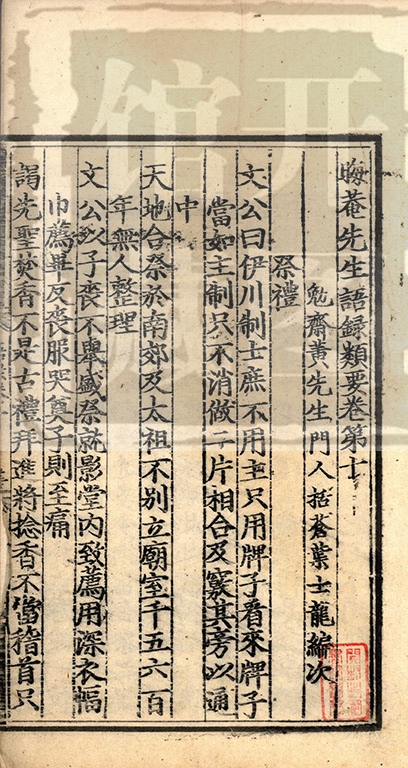 晦菴先生語録類要卷第十
勉齋黄先生門人括蒼葉士龍編次
祭禮
文公曰伊川制士庶不用主只用牌子看來牌子
當如主制只不消做二片相合及竅其旁以通
中
天地合祭於南郊及太祖不别立廟室千五六百
年無人整理
文公以子喪不舉盛祭就影堂内致薦用深衣幅
巾薦畢反喪服哭奠子則至痛
謁先聖焚香不是古禮拜進將捻香不當稽首只